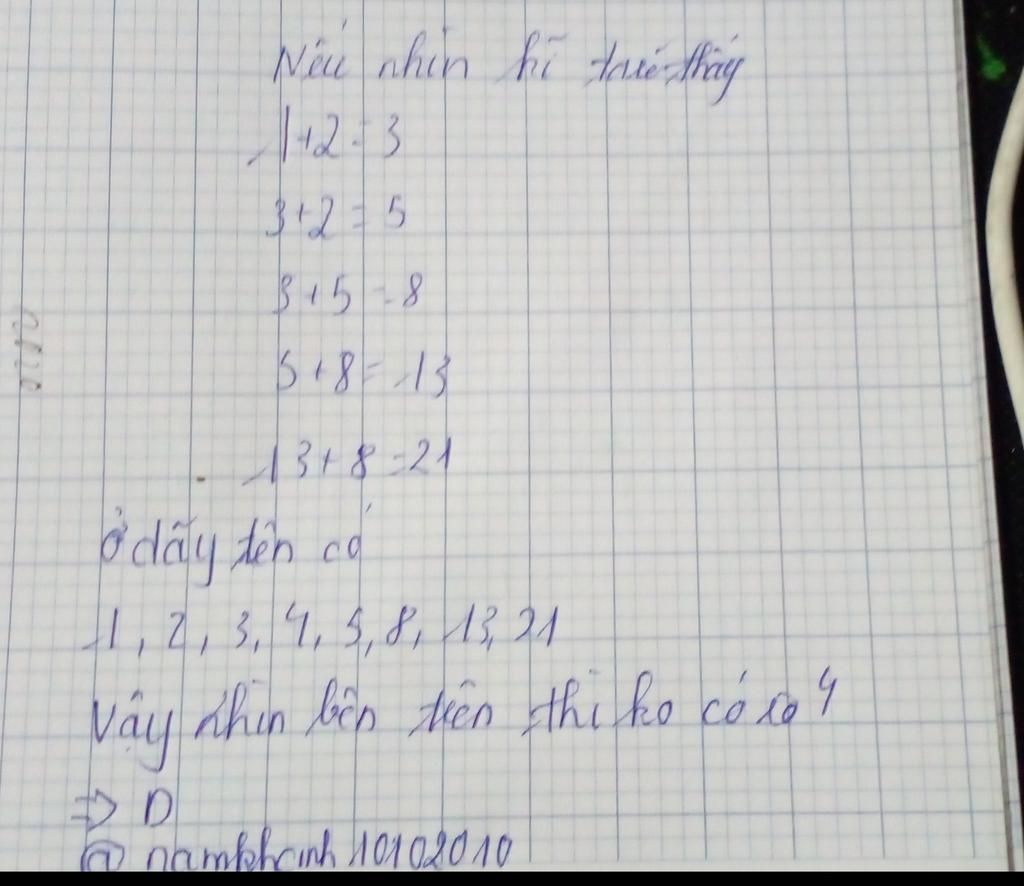 Nếu nhìn kĩ thì thấy
1+2=3
3+2=5
3+5=8
5+8=13
13+8=21
Ở dãy tên có
1, 2, 3, 4, 5, 8, 13, 21
Vậy nhìn bên trên thì ko có số 4
=> D
@ namkhanh10102010